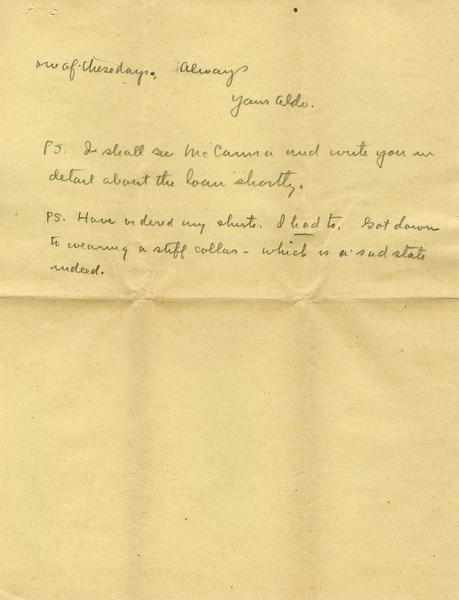 one of these days. Always
Yours Aldo.
PS. I shall see McCanna and write you in
detail about the loan shortly.
PS. Have ordered my shirts. I had to. Got down
to wearing a stiff collar - which is a sad state
indeed.